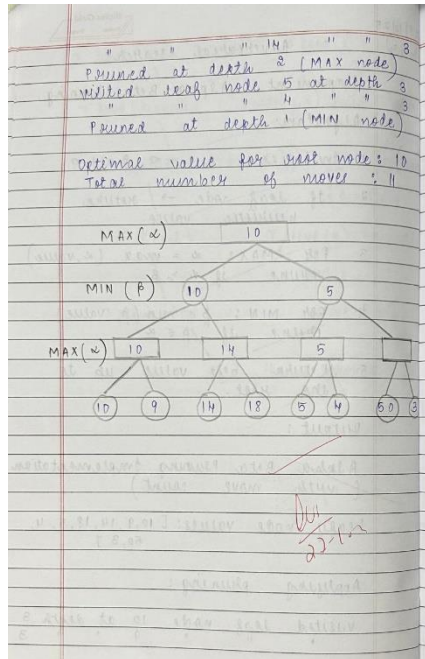 " " " 14 " " 3
Pruned at depth 2 (MAX node)
visited leaf node 5 at depth 3
" " " 4 " " 3
Pruned at depth 1 (MIN node)
Optimal value for root node : 10
Total number of moves : 11
MAX (α) 10
MIN (β) 10 5
MAX (α) 10 14 5
10 9 14 18 5 4 50 3